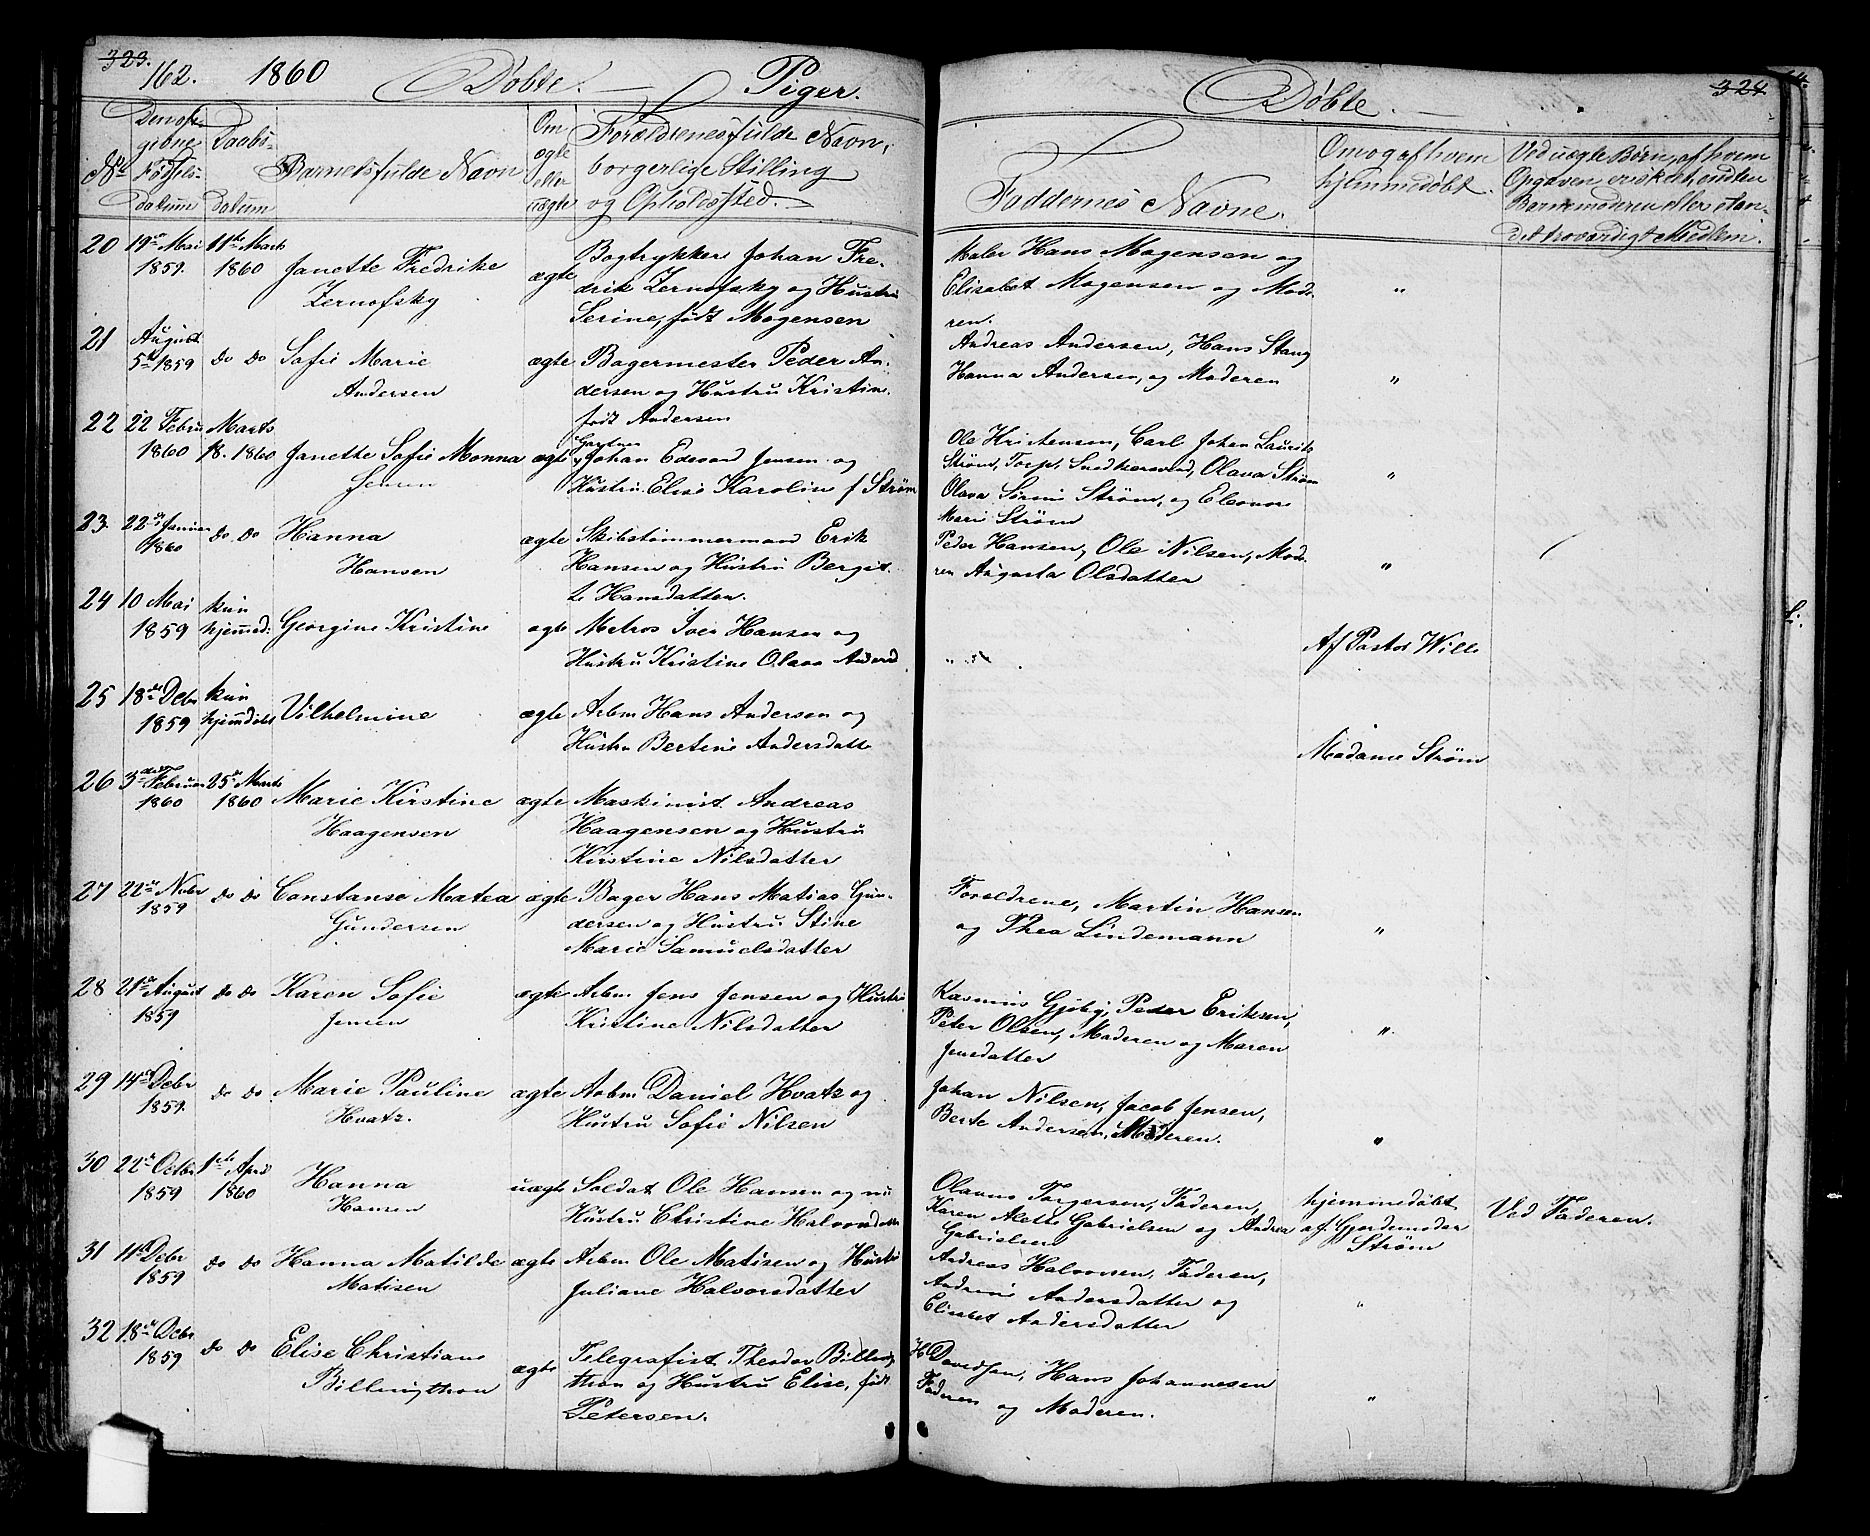 323.
162. 1860 Døbte. Piger.
Døbte. 324
No
Den opgivne Fødselsdatum
Daabsdatum
Barnets fulde Navn
Om ægte eller uægte
Forældrenes fulde Navn, borgerlige Stilling og Opholdssted.
Faddernes Navne.
Om og af hvem hjemmedøbt.
Ved uægte Børn, af hvem Opgaven er skeet, enten Barnemoderen eller et andet troværdigt Medlem.
20 19de Mai 1859. 11te Marts 1860 Janette Fredrike Zernofsky ægte
Bogtrykker Johan Fre-
drik Zernofsky og Hustru
Serine, født Mogensen
Maler Hans Mogensen og
Elisabet Mogensen og Mode-
ren.
"
21 August 5te 1859 do do Sofie Marie Andersen ægte
Bagermester Peder An-
dersen og Hustru Kristine
født Andersen
Andreas Andersen, Hans Stang
Hanna Andersen, og Moderen
"
22 22 Febru 1860 Marts 18. 1860 Janette Sofie Monna Jensen ægte
Gartner
Johan Edevard Jensen og
Hustru Elise Karoline f Strøm
Ole Kristensen, Carl Johan Laurits
Strøm, Torp, Snedkersvend, Olava Strøm
Olava Sørine Strøm, og Eleonore
Marie Strøm
"
23. 22de Januar 1860 do do Hanna Hansen ægte
Skibstømmermand Erik
Hansen og Hustru Bergit-
te Hansdatter.
Peder Hansen, Ole Nilsen, Mode-
ren Augusta Olsdatter
"
24 10 Mai 1859 kun hjemmed: Georgine Kristine ægte
Matros Iver Hansen og
Hustru Kristine Olava Andersd
"
Af Pastor Wille
25 18de Debr 1859 kun hjemdøbt Vilhelmine ægte
Arbm Hans Andersen og
Hustru Bertine Andersdatte
Madame Strøm
26 3die Februar 1860 25de Marts 1860 Marie Kirstine Haagensen ægte
Maskinist Andreas
Haagensen og Hustru
Kirstine Nilsdatter
27 22de Nvbr 1859 do do Constanse Matea Gundersen ægte
Bager Hans Matias Gun-
dersen og Hustru Stine
Marie Samuelsdatter
Forældrene, Martin Hansen
og Thea Lindemann
"
28 21de August 1859 do do Karen Sofie Jensen ægte
Arbm Jens Jensen og Hustru
Kristine Nilsdatter
Rasmus Gjøby, Peder Eriksen,
Peter Olsen, Moderen og Maren
Jensdatter
"
29 14de Debr 1859. do do Marie Pauline Hvatz. ægte
Arbm Daniel Hvatz og
Hustru Sofie Nilsen
Johan Nilsen, Jacob Jensen,
Berte Andersen, Moderen.
"
30 22de Octbr 1859 1ste April 1860 Hanna Hansen uægte
Soldat Ole Hansen og nu
Hustru Christine Halvorsdatter
Olaves Torgersen, Faderen,
Karen Alette Gabrielsen og Andrea
Gabrielsen
hjemmedøbt
af Gjordemoder
Strøm
Ved Faderen.
31 11te Debr 1859 do do Hanna Matilde Matisen ægte
Arbm Ole Matisen og Hustru
Juliane Halvorsdatter
Andreas Halvorsen, Faderen,
Andrine Andersdatter og
Elisabet Andersdatter
"
32 18de Debr 1859 do do Elise Christiane Billingthon ægte
Telegrafist Theodor Billing-
thon og Hustru Elise, født
Petersen.
H Davidsen, Hans Johannesen
Faderen og Moderen.
"